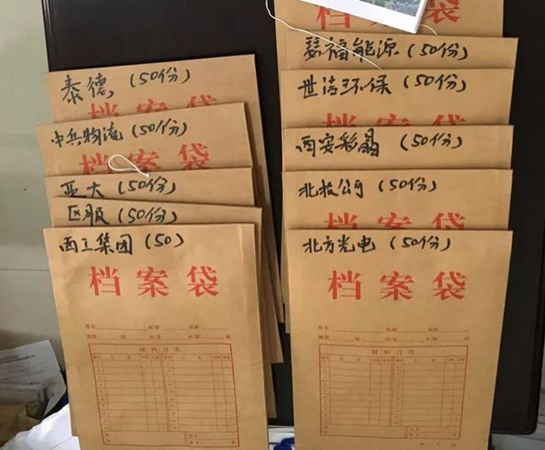 泰德（50份）
档案袋
中兵物流（50份）
档案袋
亚大（50份）
区服（50份）
西工集团（50）
档案袋
材料目录
瑟福能源（50份）
世洁环保（50份）
档案袋
西安彩晶（50份）
北投公司（50份）
北方光电（50份）
档案袋
材料目录